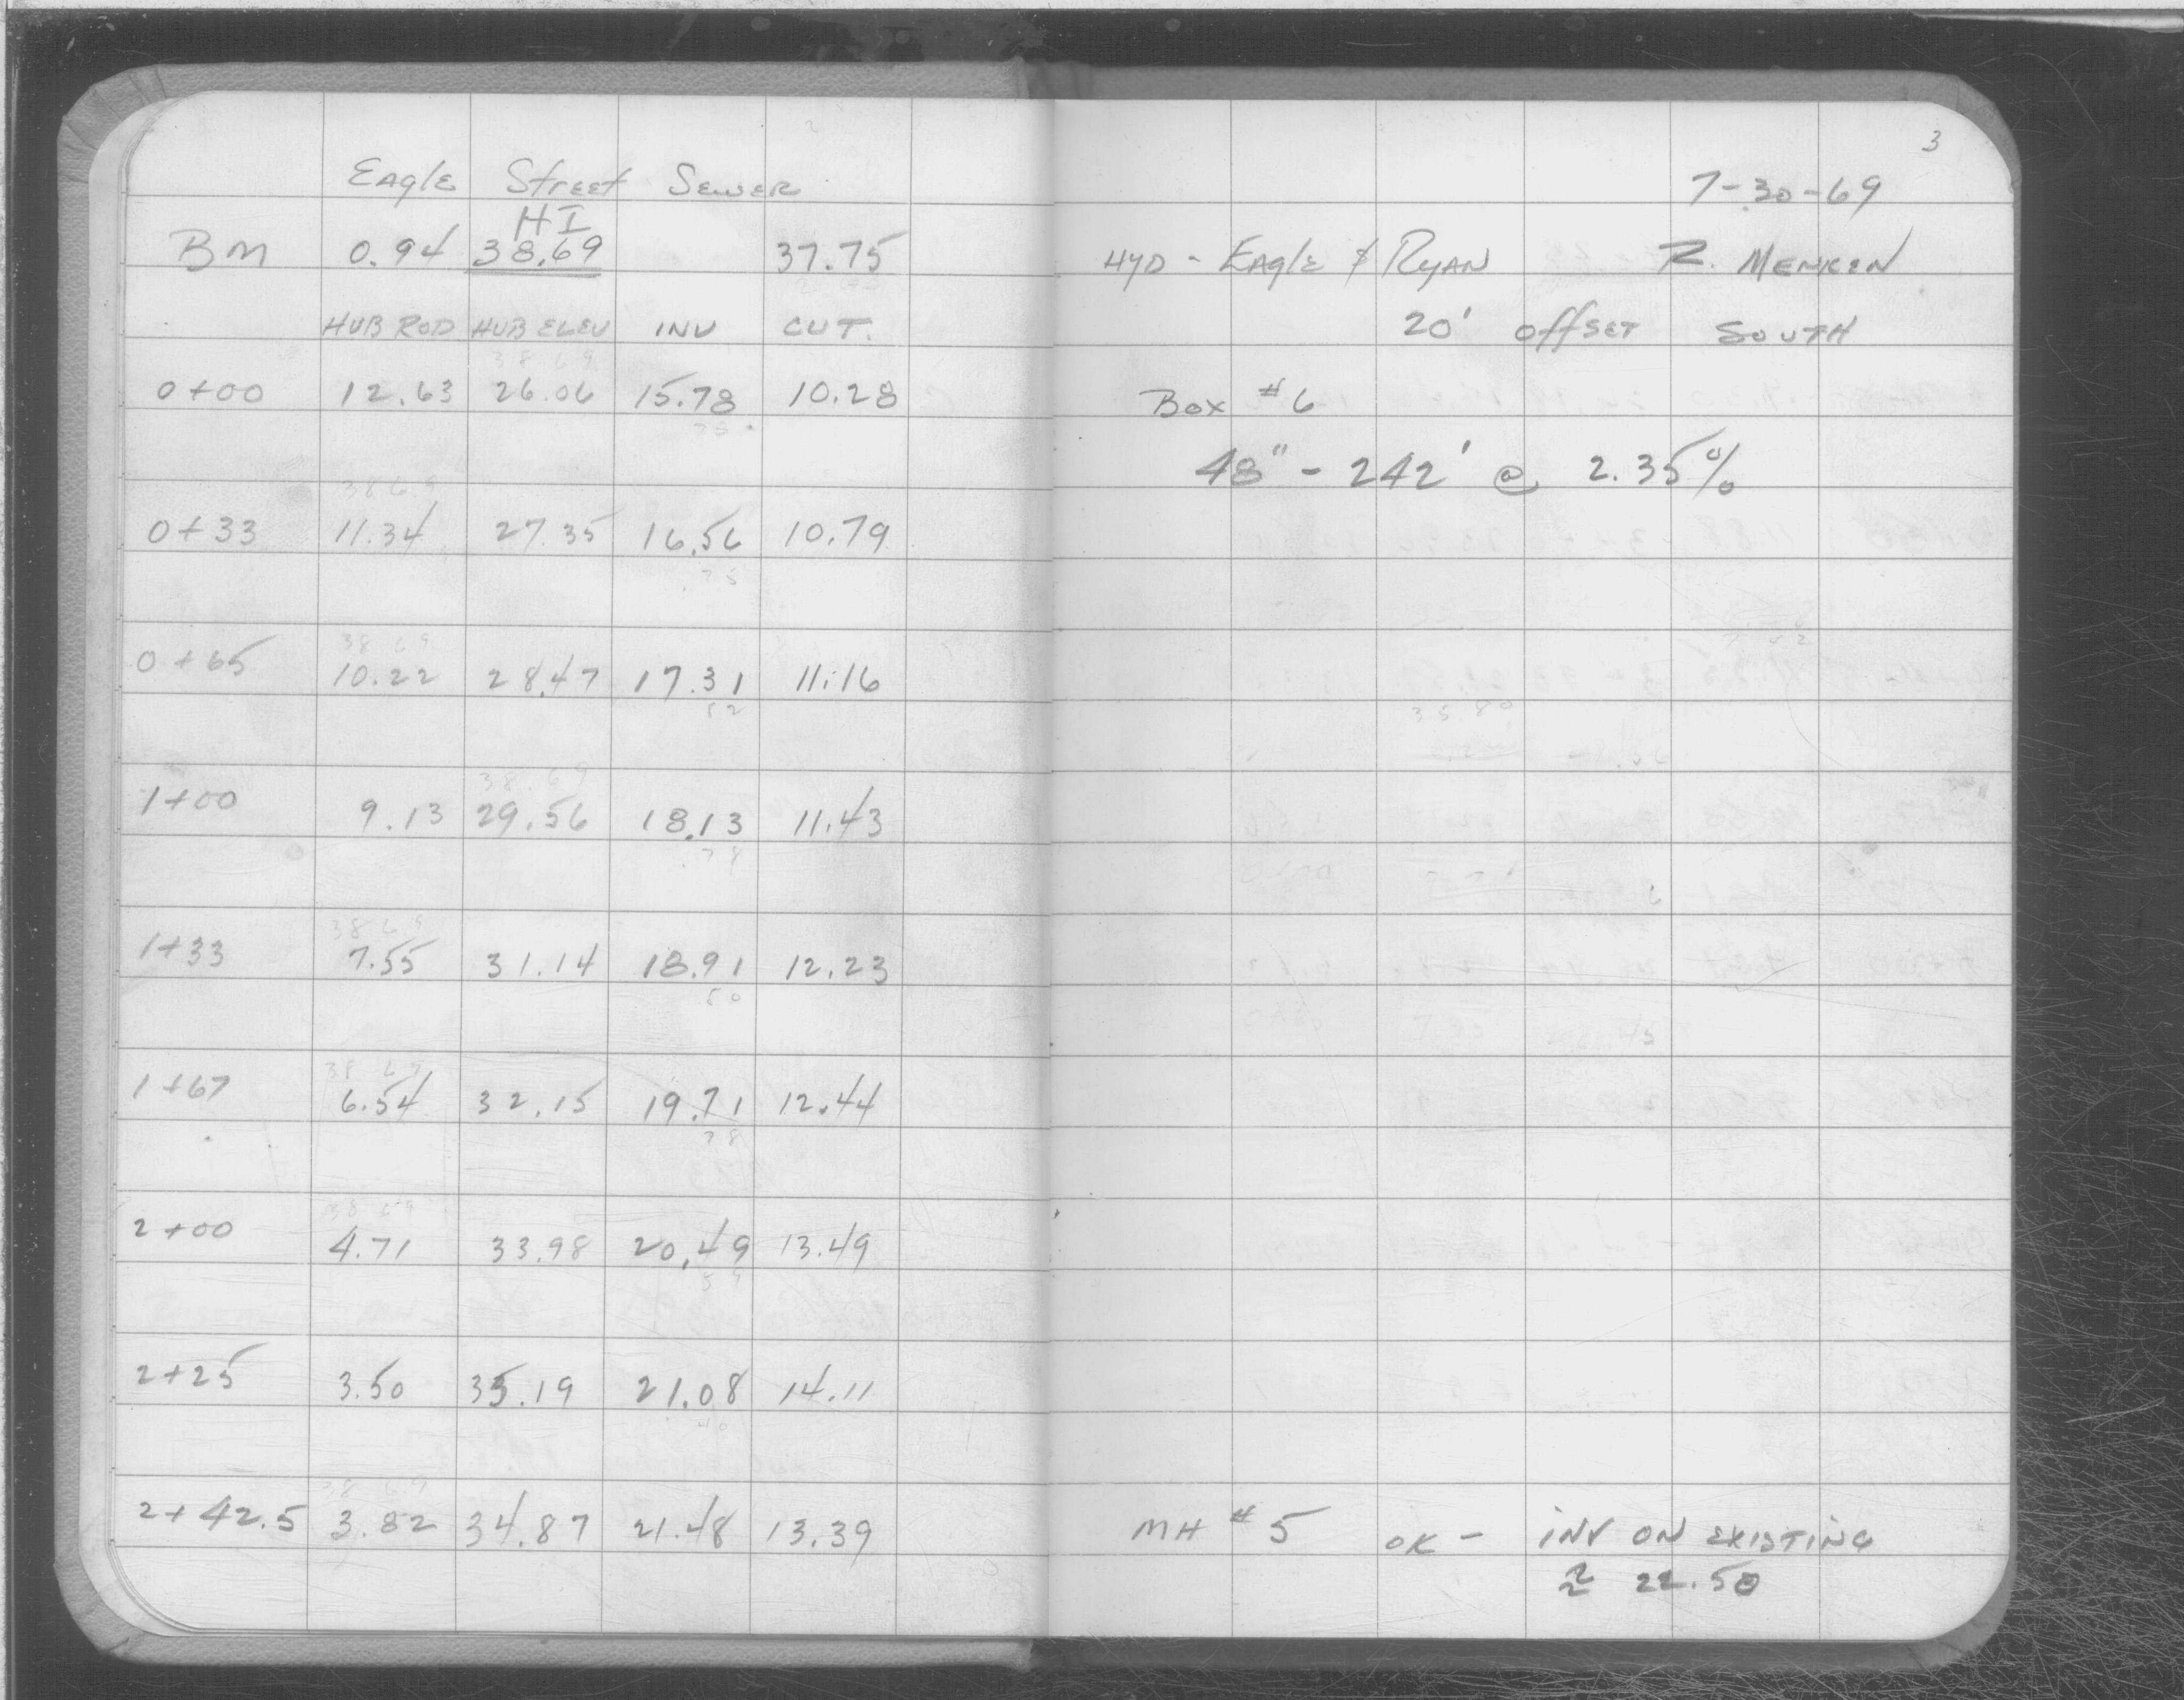 Eagle Street Sewer
HI
BM 0.94 38.69 37.75
HUB ROD HUB ELEV INV CUT.
38 69
0+00 12.63 26.06 15.78 10.28
78
38 69
0+33 11.34 27.35 16.56 10.79
75
38 69
0+65 10.22 28.47 17.31 11.16
82
38 69
1+00 9.13 29.56 18.13 11.43
.78
38 69
1+33 7.55 31.14 18.91 12.23
80
38 69
1+67 6.54 32.15 19.71 12.44
78
38 69
2+00 4.71 33.98 20.49 13.49
59
2+25 3.50 35.19 21.08 14.11
40
38 69
2+42.5 3.82 34.87 21.48 13.39
3
7-30-69
HYD - Eagle & RYAN R. MENKEN
20' offset SOUTH
Box #6
48" - 242' @ 2.35%
MH #5 OK - INV ON EXISTING
≈ 22.50